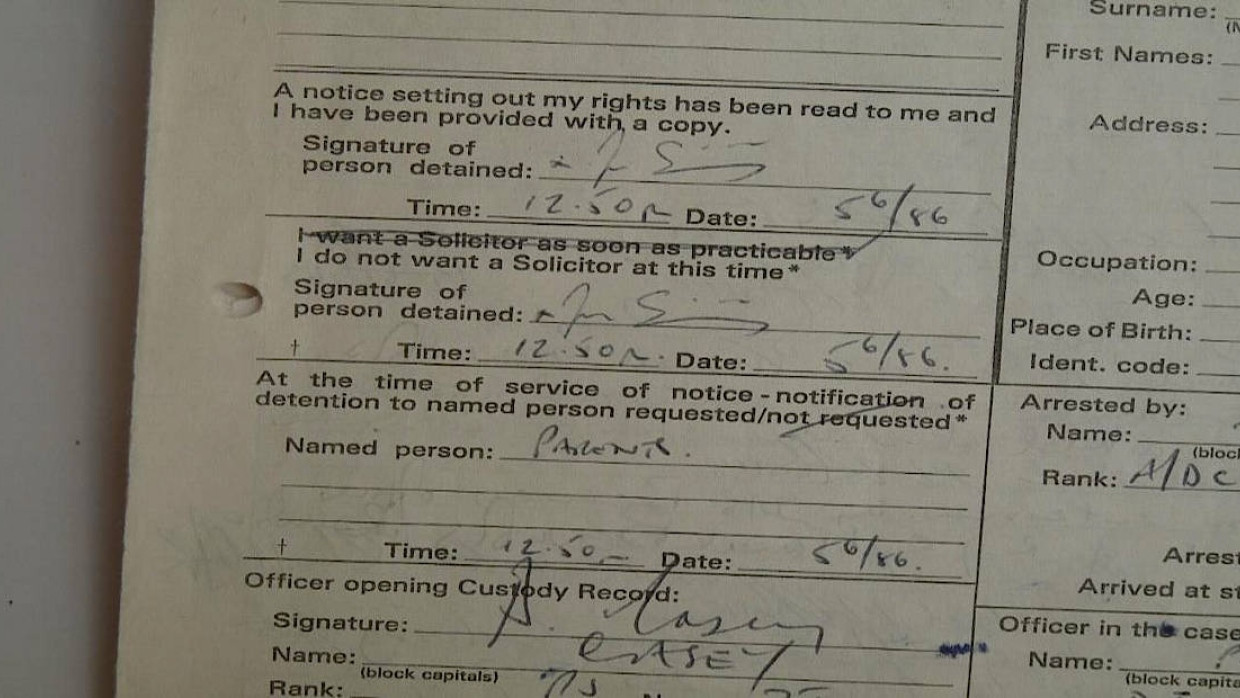 A notice setting out my rights has been read to me and
I have been provided with a copy.
Signature of
person detained:
Time: 12.50 Date: 5 6/86
I want a Solicitor as soon as practicable*
I do not want a Solicitor at this time*
Signature of
person detained:
† Time: 12.50 Date: 5 6/86.
At the time of service of notice - notification of
detention to named person requested/not requested*
Named person: PARENTS.
† Time: 12.50 Date: 5 6/86.
Officer opening Custody Record:
Signature: Casey
Name: CASEY
(block capitals)
Rank: PS
Surname:
First Names:
Address:
Occupation:
Age:
Place of Birth:
Ident. code:
Arrested by:
Name:
(block
Rank: A/DC
Arrest
Arrived at st
Officer in the case
Name:
(block capita